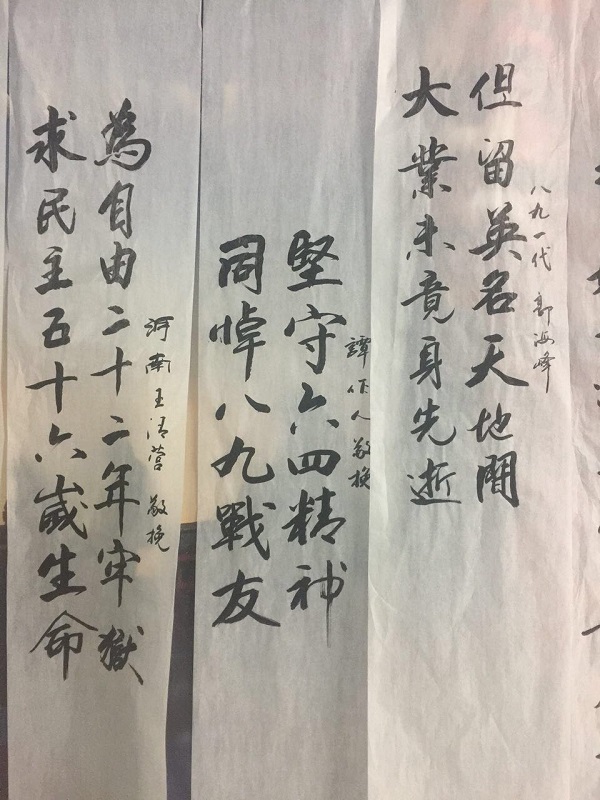 八九一代 郭海峰
但留英名天地間
大業未竟身先逝
譚作人敬挽
堅守六四精神
同悼八九戰友
河南王清營敬挽
為自由二十二年牢獄
求民主五十六歲生命